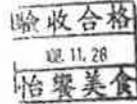 驗收合格
102.11.28
怡饗美食